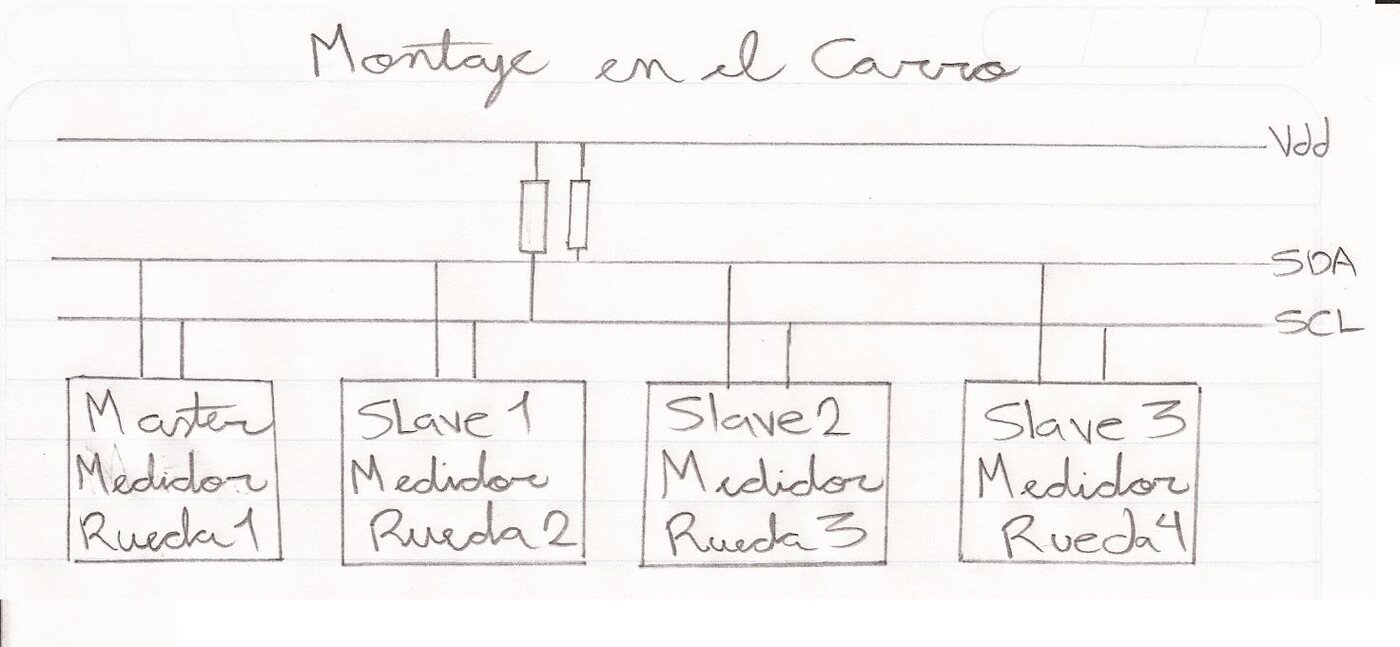 Montaje en el Carro
Vdd
SDA
SCL
Master
Medidor
Rueda 1
SLave 1
Medidor
Rueda 2
Slave 2
Medidor
Rueda 3
Slave 3
Medidor
Rueda 4